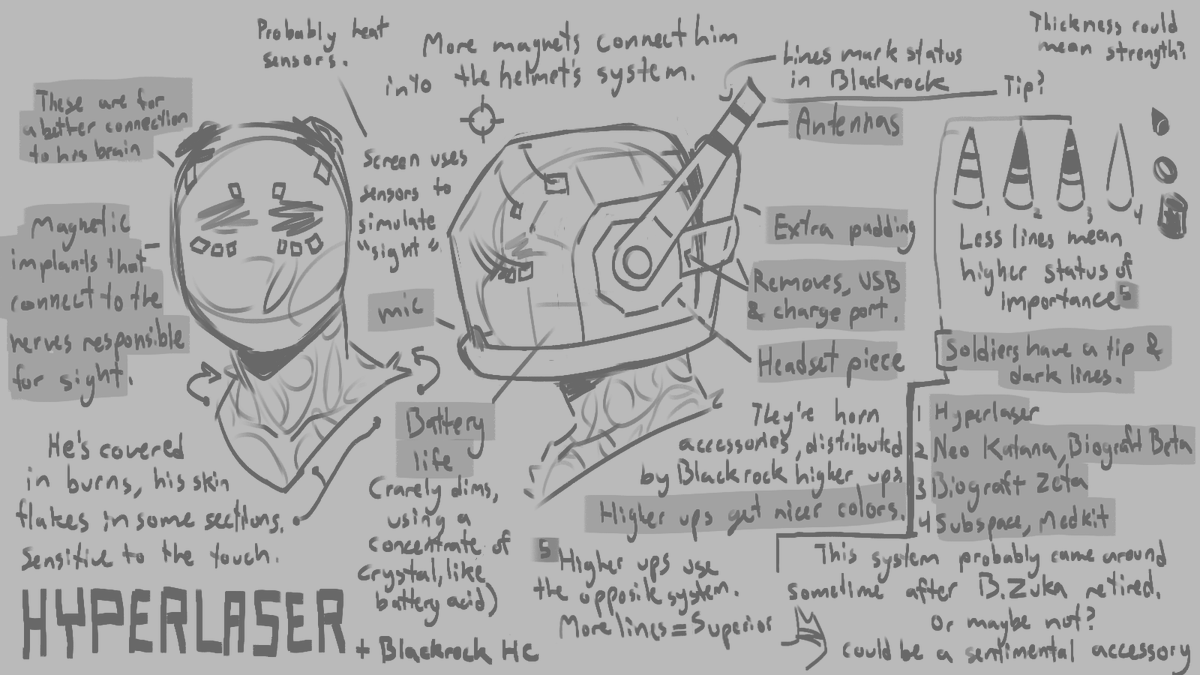 Probably heat
sensors.
More magnets connect him
into the helmet's system.
Lines mark status
in Blackrock
Thickness could
mean strength?
Tip?
These are for
a better connection
to his brain
Antennas
Screen uses
sensors to
simulate
"sight"
1 2 3 4
Magnetic
implants that
connect to the
nerves responsible
for sight.
mic
Extra padding
Removes, USB
& charge port.
Headset piece
Less lines mean
higher status of
importance 5
Soldiers have a tip &
dark lines.
1 Hyperlaser
2 Neo Katana, Biograft Beta
3 Biograft Zeta
4 Subspace, Medkit
They're horn
accessories, distributed
by Blackrock higher ups.
Higher ups get nicer colors.
Battery
life
(rarely dims,
using a
concentrate of
Crystal, like
battery acid)
He's covered
in burns, his skin
flakes in some sections.
Sensitive to the touch.
5 Higher ups use
the opposite system.
More lines = Superior
This system probably came around
sometime after B.Zuka retired.
Or maybe not?
could be a sentimental accessory
HYPERLASER
+ Blackrock HC